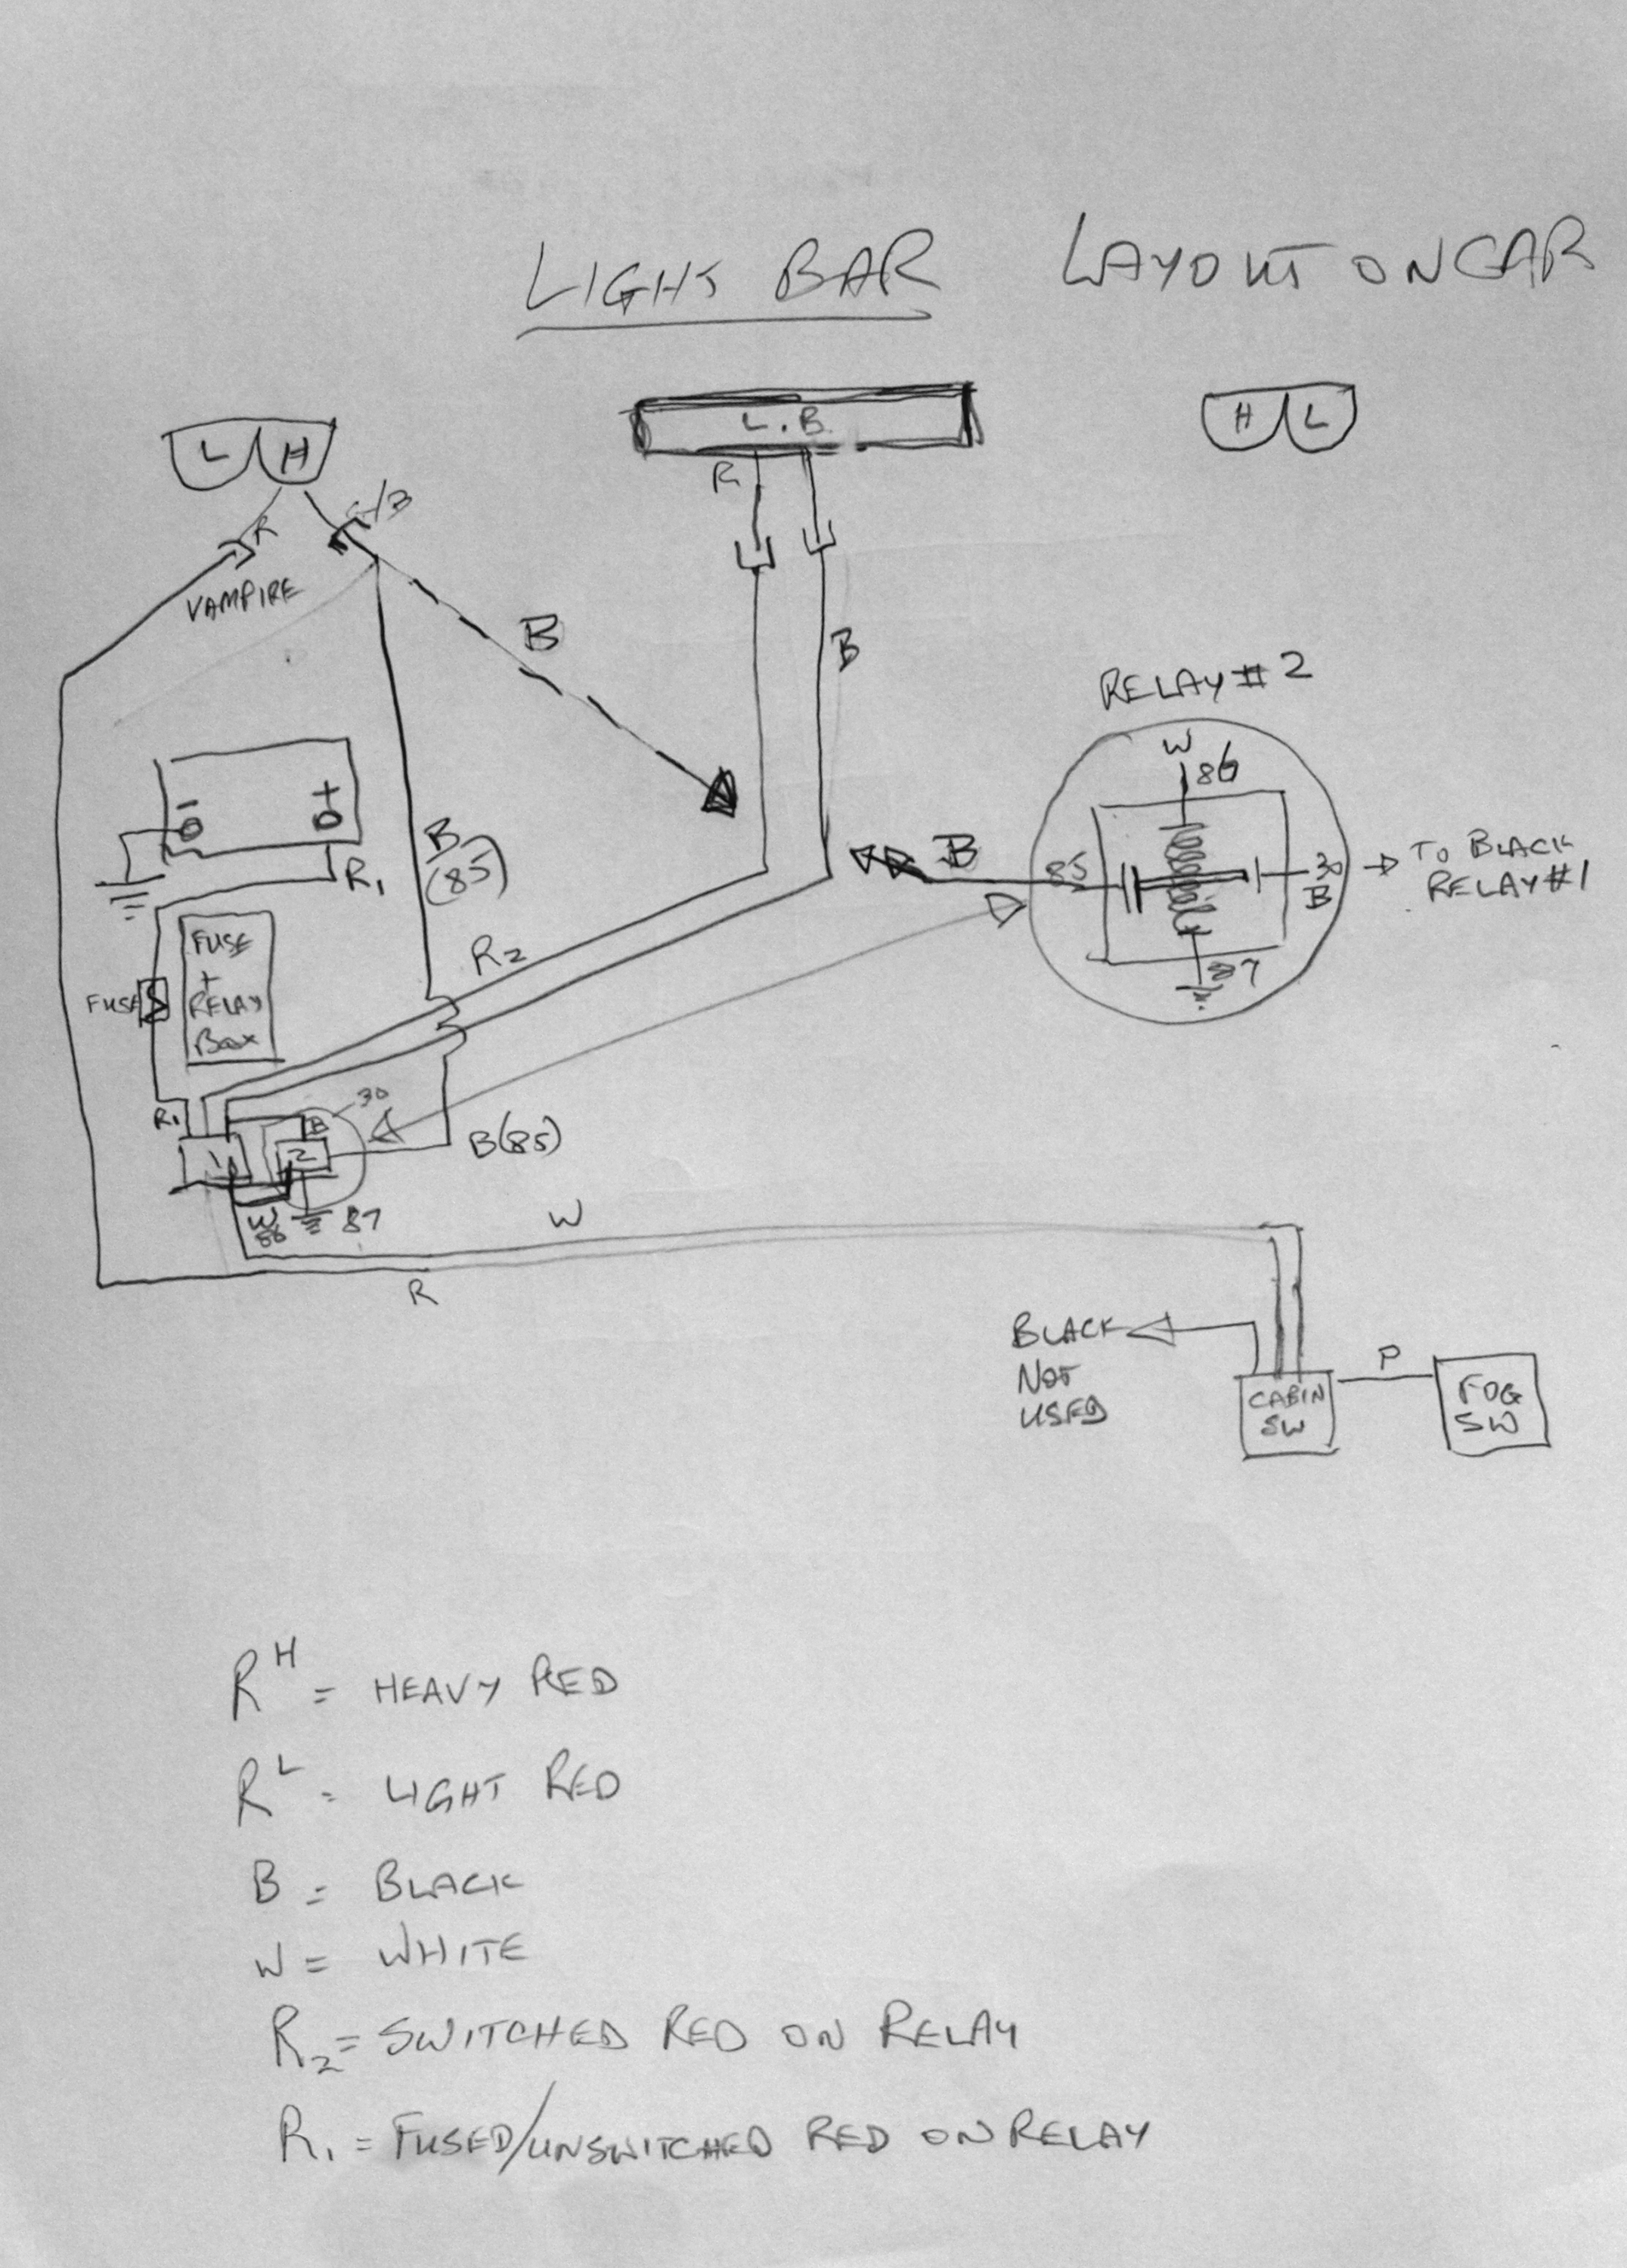 LIGHT BAR LAYOUT ON CAR
L H
L.B.
H L
R
R
VAMPIRE
B
B
RELAY #2
W
86
- +
R1
B
(85)
B
85
30
B
TO BLACK
RELAY #1
87
FUSE
+
RELAY
BOX
FUSE
R2
R1
30
B
1
2
B(85)
W
86
87
W
R
BLACK
NOT
USED
CABIN
SW
P
FOG
SW
RH = HEAVY RED
RL = LIGHT RED
B = BLACK
W = WHITE
R2 = SWITCHED RED ON RELAY
R1 = FUSED/UNSWITCHED RED ON RELAY